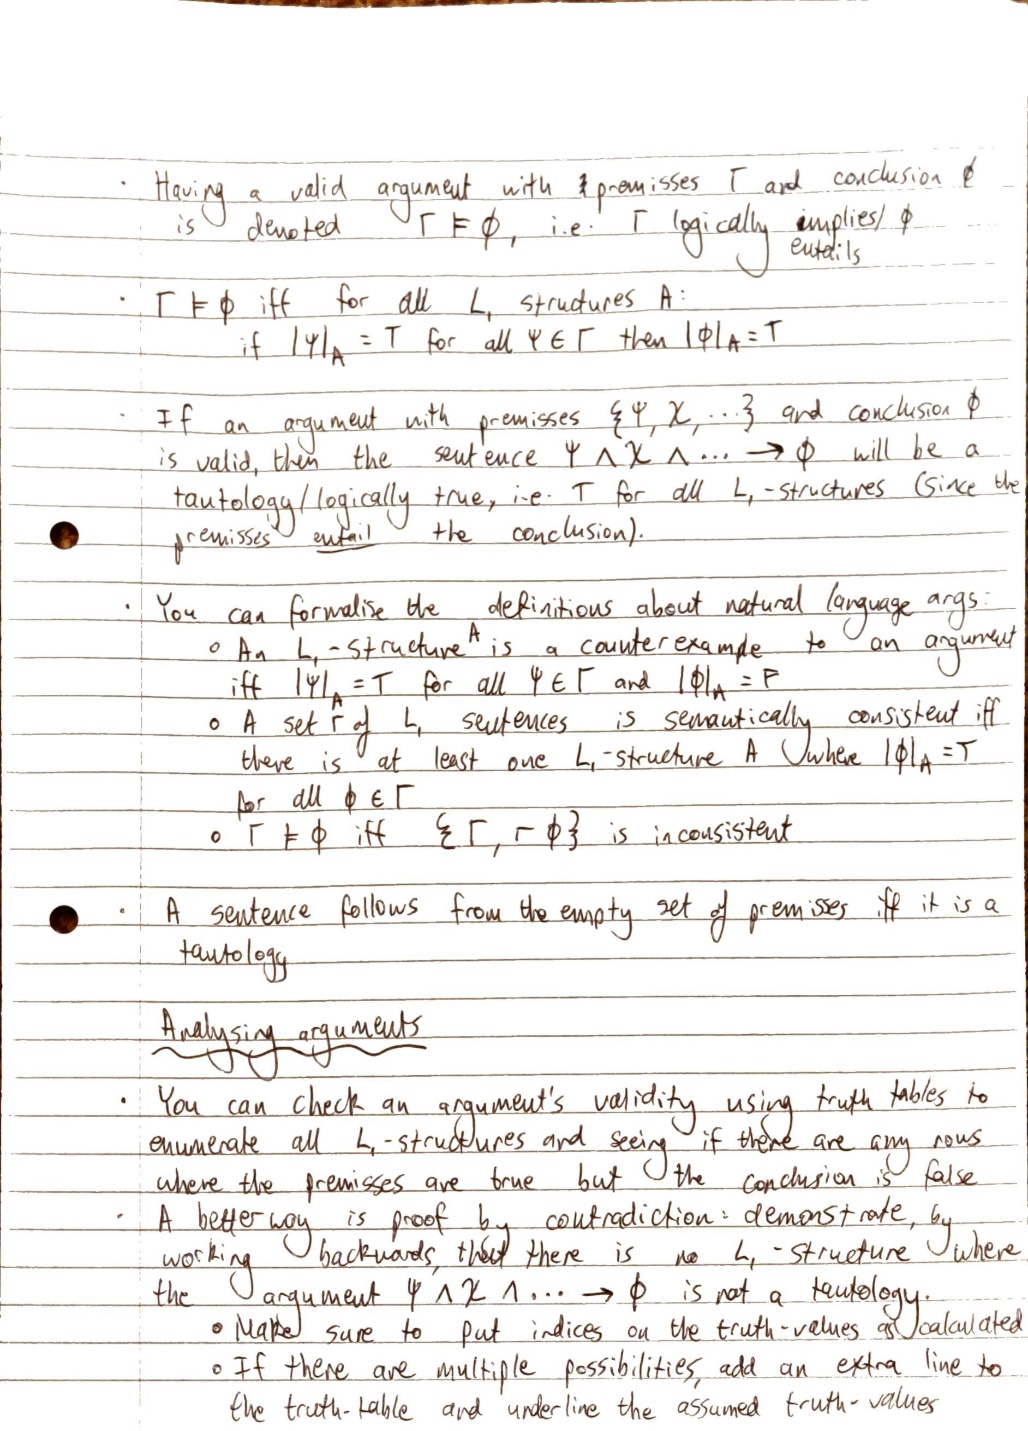 · Having a valid argument with premisses Γ and conclusion ϕ
is denoted Γ ⊨ ϕ, i.e. Γ logically implies/ ϕ
entails
· Γ ⊨ ϕ iff for all L₁ structures A:
if |ψ|_A = T for all ψ ∈ Γ then |ϕ|_A = T
· If an argument with premisses {ψ, χ, ...} and conclusion ϕ
is valid, then the sentence ψ ∧ χ ∧ ... → ϕ will be a
tautology/logically true, i.e. T for all L₁-structures (since the
premisses entail the conclusion).
· You can formalise the definitions about natural language args:
∘ An L₁-structure A is a counterexample to an argument
iff |ψ|_A = T for all ψ ∈ Γ and |ϕ|_A = F
∘ A set Γ of L₁ sentences is semantically consistent iff
there is at least one L₁-structure A where |ϕ|_A = T
for all ϕ ∈ Γ
∘ Γ ⊨ ϕ iff {Γ, ¬ϕ} is inconsistent
· A sentence follows from the empty set of premisses iff it is a
tautology
Analysing arguments
· You can check an argument's validity using truth tables to
enumerate all L₁-structures and seeing if there are any rows
where the premisses are true but the conclusion is false
· A better way is proof by contradiction: demonstrate, by
working backwards, that there is no L₁-structure where
the argument ψ ∧ χ ∧ ... → ϕ is not a tautology.
∘ Make sure to put indices on the truth-values as calculated
∘ If there are multiple possibilities, add an extra line to
the truth-table and underline the assumed truth-values